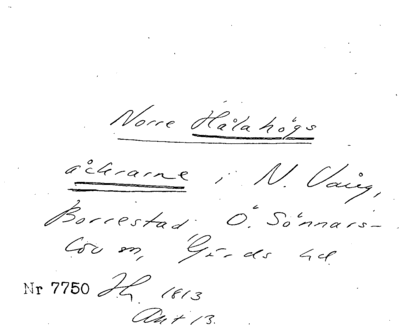 Norre Hålahögs
åkrarne i N. Vång,
Borrestad, Ö. Sönnars-
löv sn, Gärds hd
Nr 7750 1813
Akt 13.